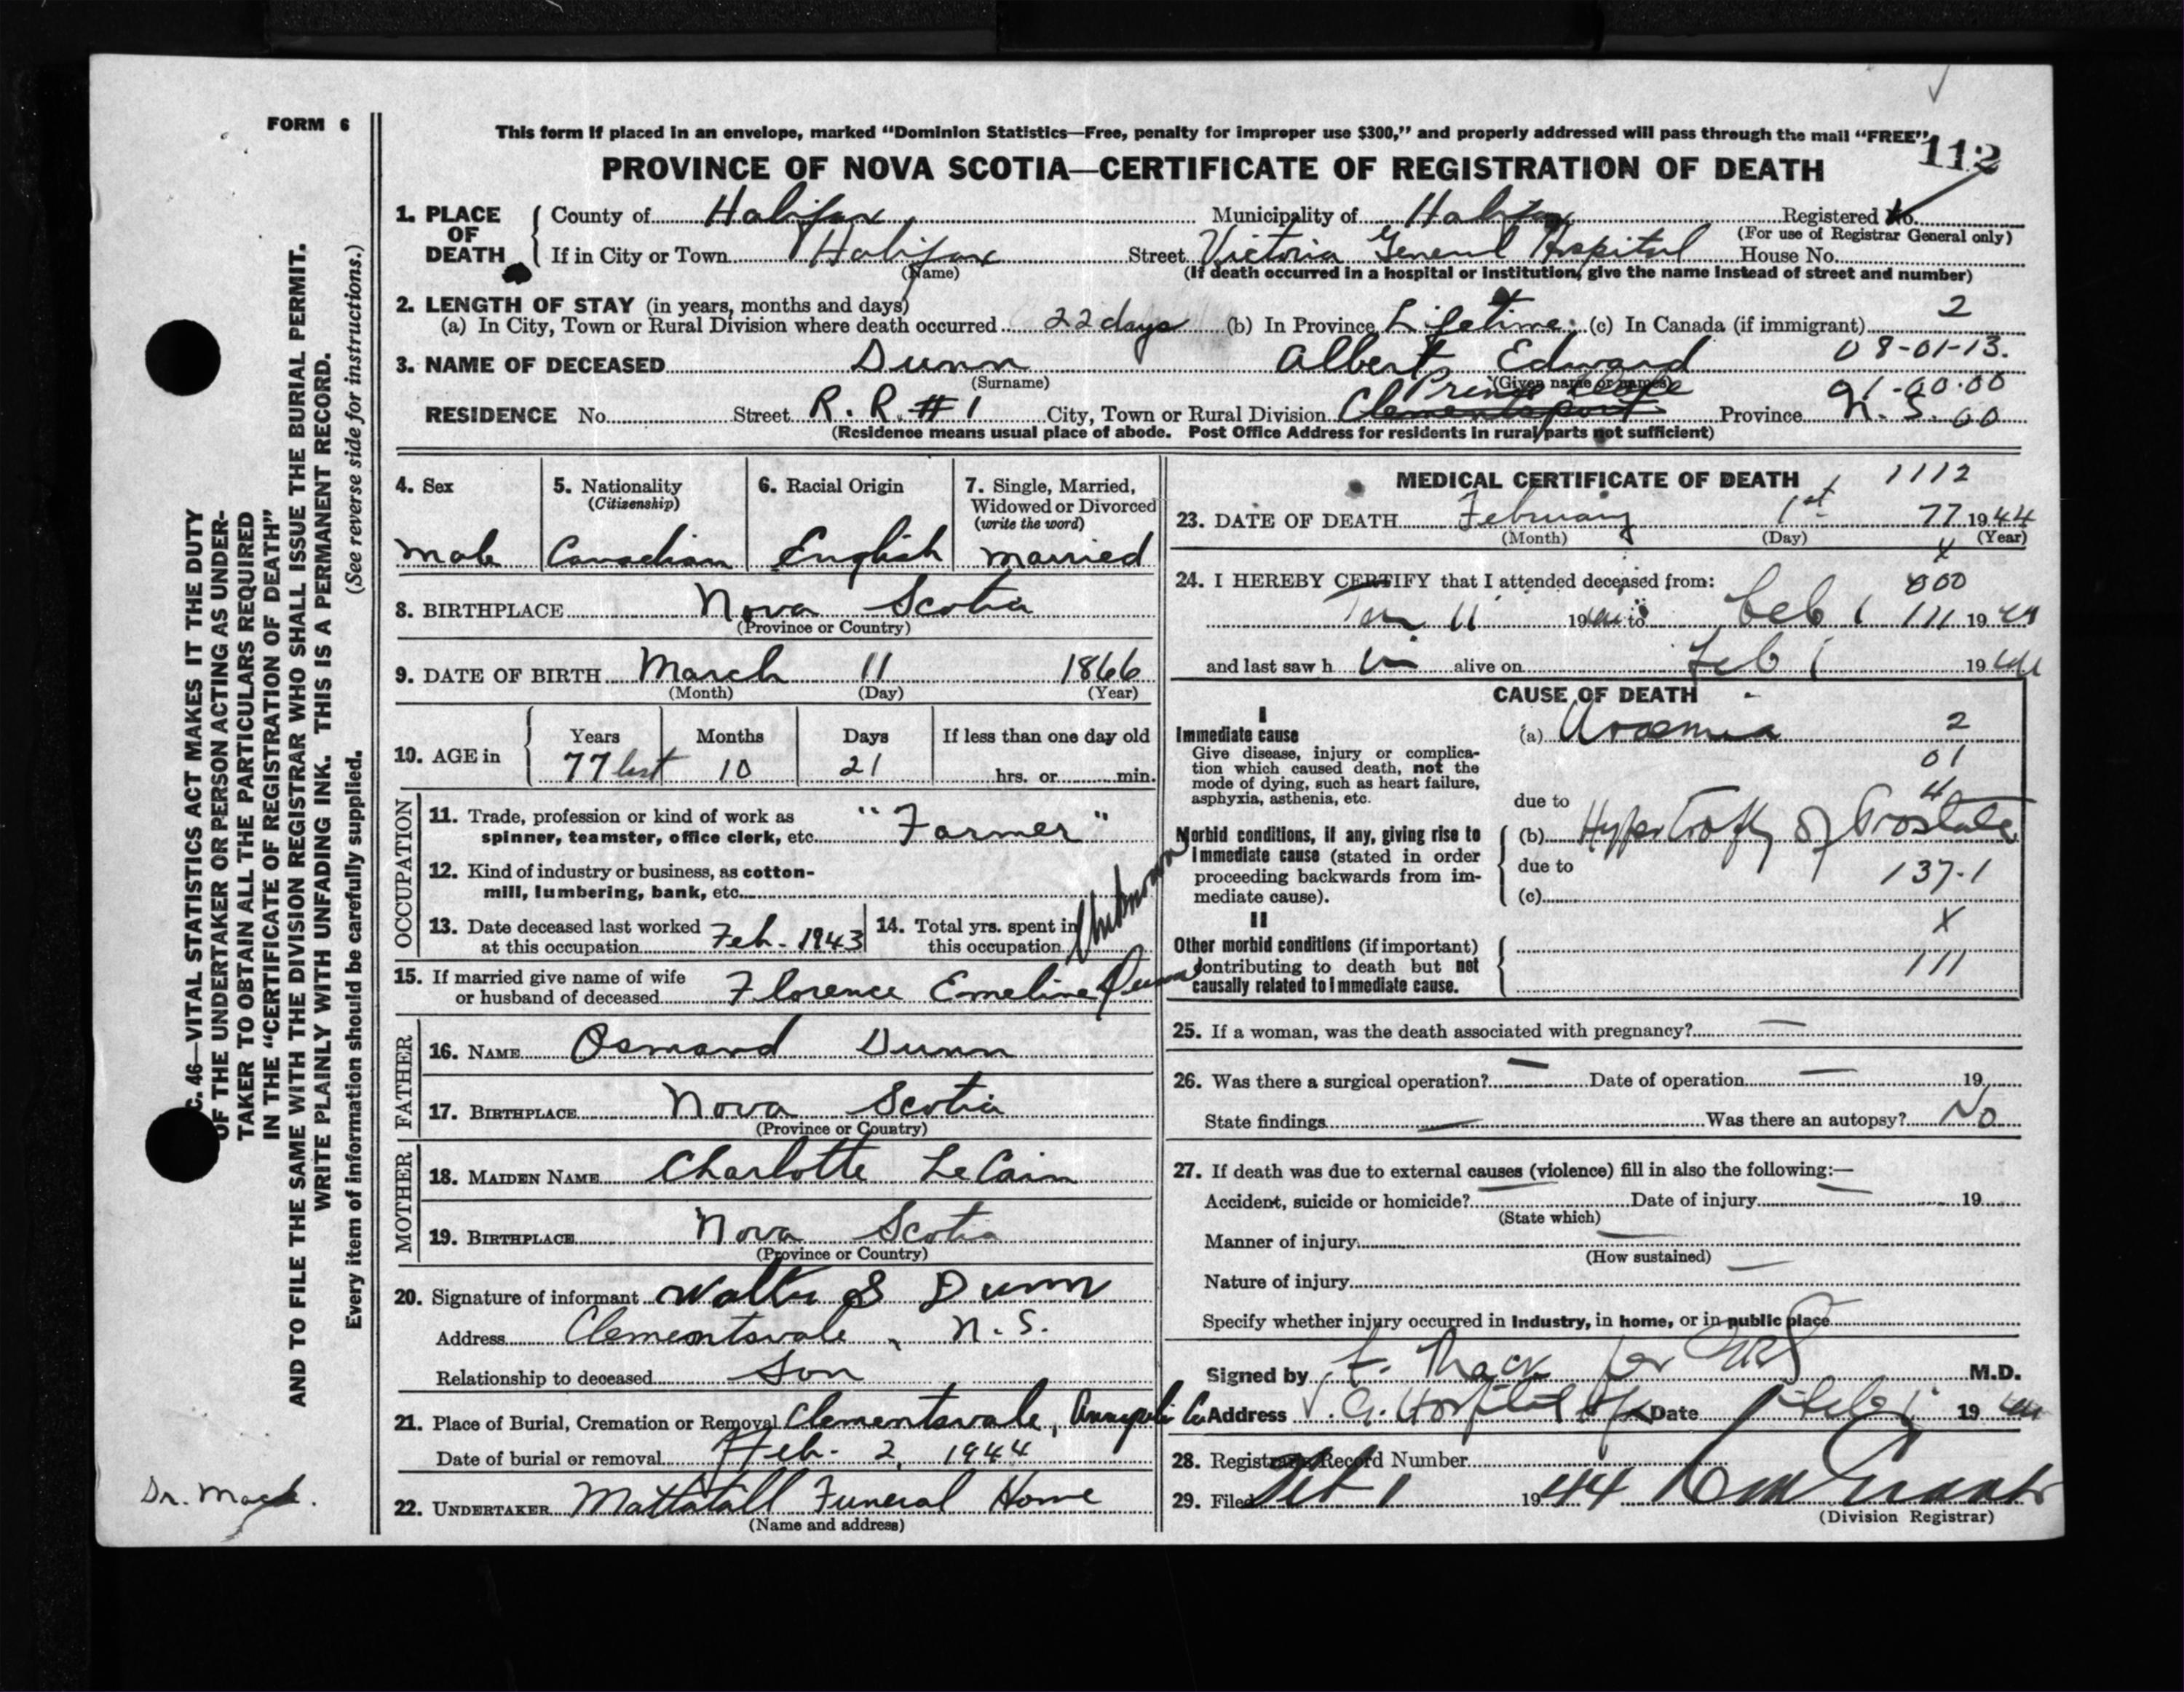 FORM 6
This form if placed in an envelope, marked “Dominion Statistics—Free, penalty for improper use $300,” and properly addressed will pass through the mail “FREE”
112
PROVINCE OF NOVA SCOTIA—CERTIFICATE OF REGISTRATION OF DEATH
1. PLACE OF DEATH
County of Halifax Municipality of Halifax Registered No.
(For use of Registrar General only)
If in City or Town Halifax Street Victoria General Hospital House No.
(Name) (If death occurred in a hospital or institution, give the name instead of street and number)
2. LENGTH OF STAY (in years, months and days)
(a) In City, Town or Rural Division where death occurred 22 days (b) In Province Lifetime (c) In Canada (if immigrant) 2
3. NAME OF DECEASED Dunn Albert Edward 08-01-13.
(Surname) (Given name or names)
Prince 91-00.00
RESIDENCE No. Street R. R. #1 City, Town or Rural Division Clementsport Province N. S. 00
(Residence means usual place of abode. Post Office Address for residents in rural parts not sufficient)
4. Sex
male
5. Nationality
(Citizenship)
Canadian
6. Racial Origin
English
7. Single, Married,
Widowed or Divorced
(write the word)
married
8. BIRTHPLACE Nova Scotia
(Province or Country)
9. DATE OF BIRTH March 11 1866
(Month) (Day) (Year)
10. AGE in
Years Months Days If less than one day old
77 10 21 hrs. or min.
OCCUPATION
11. Trade, profession or kind of work as
spinner, teamster, office clerk, etc. "Farmer"
12. Kind of industry or business, as cotton-
mill, lumbering, bank, etc.
13. Date deceased last worked
at this occupation Feb. 1943
14. Total yrs. spent in
this occupation Unknown
15. If married give name of wife
or husband of deceased Florence Emeline Dunn
FATHER
16. NAME Osmand Dunn
17. BIRTHPLACE Nova Scotia
(Province or Country)
MOTHER
18. MAIDEN NAME Charlotte LeCain
19. BIRTHPLACE Nova Scotia
(Province or Country)
20. Signature of informant Walter S Dunn
Address Clementsvale, N. S.
Relationship to deceased Son
21. Place of Burial, Cremation or Removal Clementsvale, Annapolis Co
Date of burial or removal Feb. 2, 1944
22. UNDERTAKER Mattatall Funeral Home
(Name and address)
MEDICAL CERTIFICATE OF DEATH 1112
23. DATE OF DEATH February 1st 77 1944
(Month) (Day) (Year)
X
24. I HEREBY CERTIFY that I attended deceased from: 000
Jan 11 1944 to Feb 1 111 1944
and last saw h im alive on Feb 1 1944
CAUSE OF DEATH
I
Immediate cause
Give disease, injury or complica-
tion which caused death, not the
mode of dying, such as heart failure,
asphyxia, asthenia, etc.
(a) Uraemia 2
01
4
due to
Morbid conditions, if any, giving rise to
immediate cause (stated in order
proceeding backwards from im-
mediate cause).
(b) Hypertrophy of Prostate
due to 137-1
(c)
II
X
Other morbid conditions (if important)
contributing to death but not
causally related to immediate cause.
111
25. If a woman, was the death associated with pregnancy? —
26. Was there a surgical operation? — Date of operation — 19
State findings — Was there an autopsy? No
27. If death was due to external causes (violence) fill in also the following:—
Accident, suicide or homicide? — Date of injury — 19
(State which)
Manner of injury —
(How sustained)
Nature of injury —
Specify whether injury occurred in Industry, in home, or in public place
Signed by F. Mack for M.D.
Address V. G. Hospital Hfx Date Feb 1 1944
28. Registrar's Record Number
29. Filed Feb 1 1944
(Division Registrar)
C. 46—VITAL STATISTICS ACT MAKES IT THE DUTY
OF THE UNDERTAKER OR PERSON ACTING AS UNDER-
TAKER TO OBTAIN ALL THE PARTICULARS REQUIRED
IN THE “CERTIFICATE OF REGISTRATION OF DEATH”
AND TO FILE THE SAME WITH THE DIVISION REGISTRAR WHO SHALL ISSUE THE BURIAL PERMIT.
WRITE PLAINLY WITH UNFADING INK. THIS IS A PERMANENT RECORD.
Every item of information should be carefully supplied. (See reverse side for instructions.)
Dr. Mack.